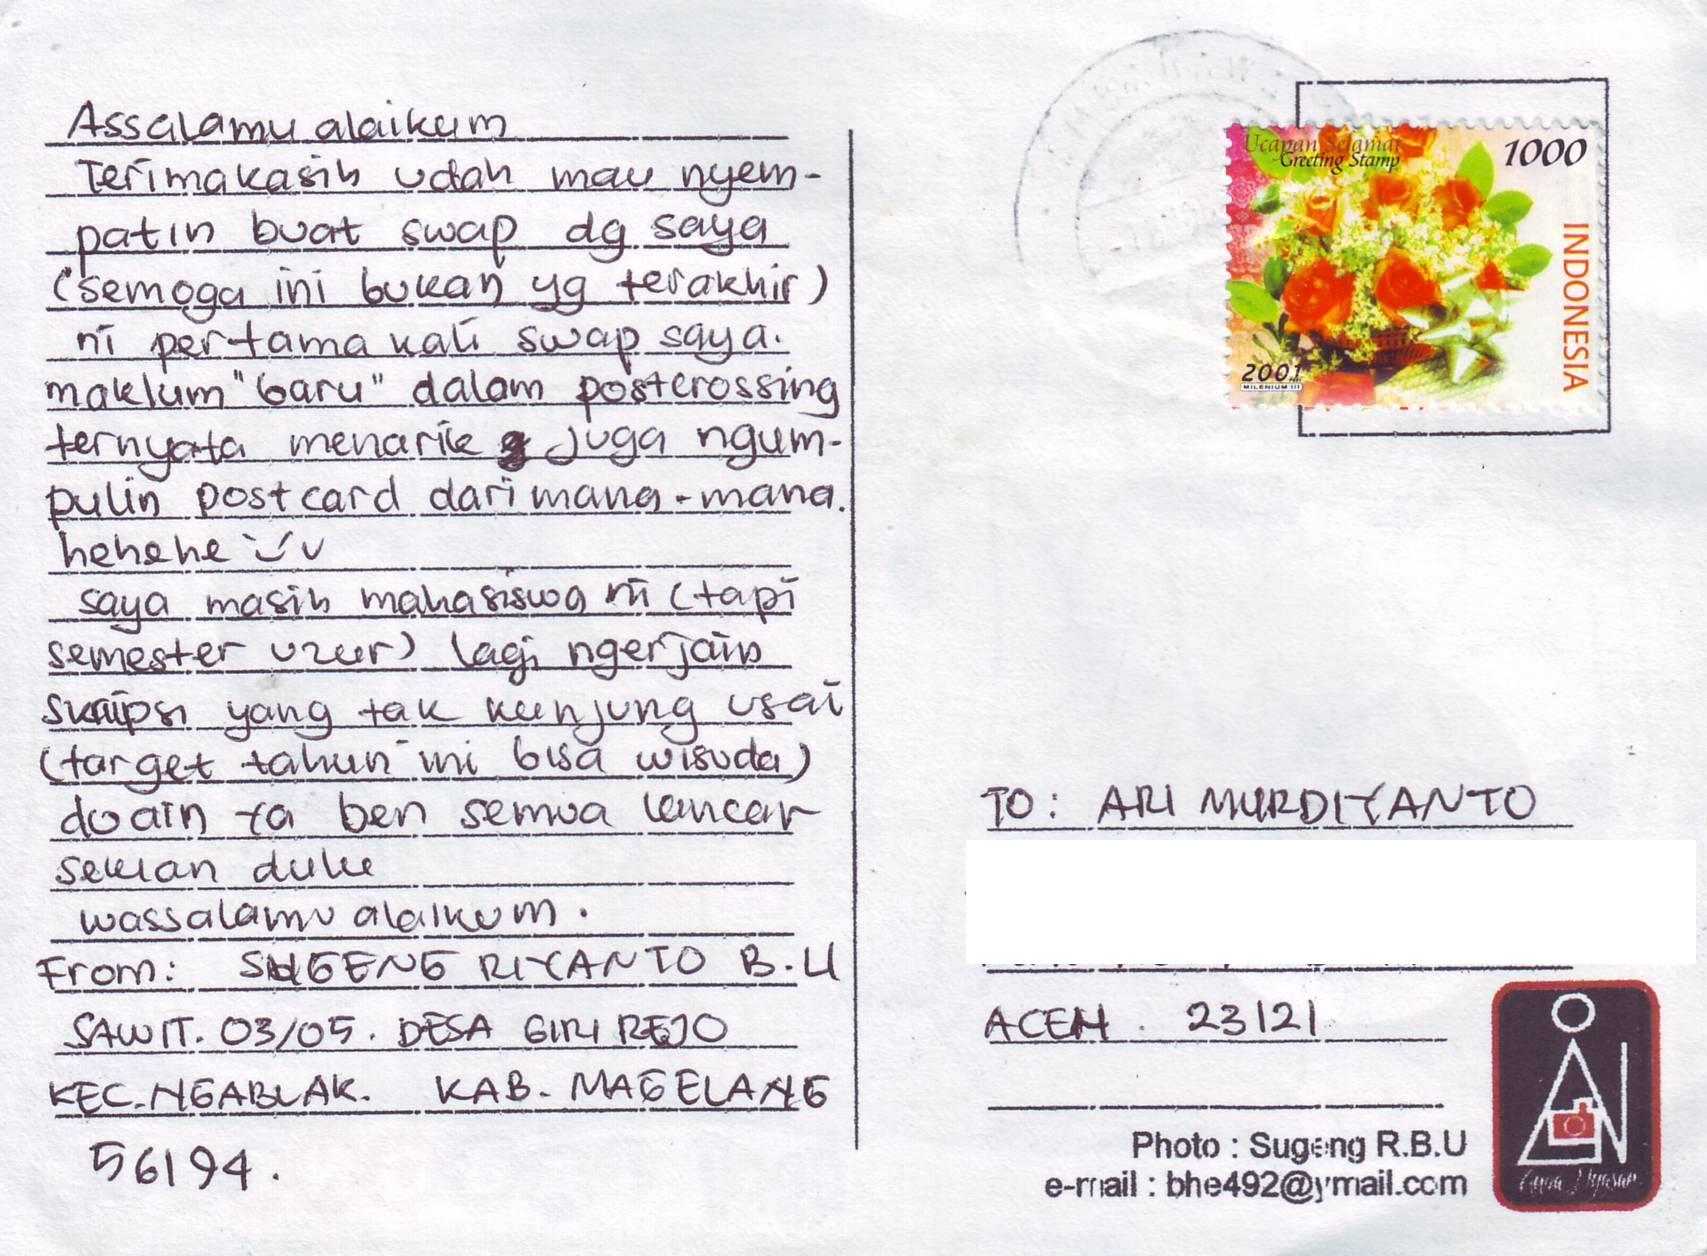 Assalamu alaikum
Terimakasih udah mau nyem-
patin buat swap dg saya
(semoga ini bukan yg terakhir)
ni pertama kali swap saya.
maklum "baru" dalam postcrossing
ternyata menarik juga ngum-
pulin postcard dari mana-mana.
hehehe
saya masih mahasiswa ni (tapi
semester uzur) lagi ngerjain
skripsi yang tak kunjung usai
(target tahun ini bisa wisuda)
doain ya ben semua lancar
sekian dulu
wassalamu alaikum.
From: SUGENG RIYANTO B.U
SAWIT. 03/05. DESA GIRIREJO
KEC. NGABLAK. KAB. MAGELANG
56194.
Ucapan Selamat
Greeting Stamp
1000
INDONESIA
2001
MILENIUM III
TO: ARI MURDIYANTO
ACEH. 23121
Photo : Sugeng R.B.U
e-mail : bhe492@ymail.com